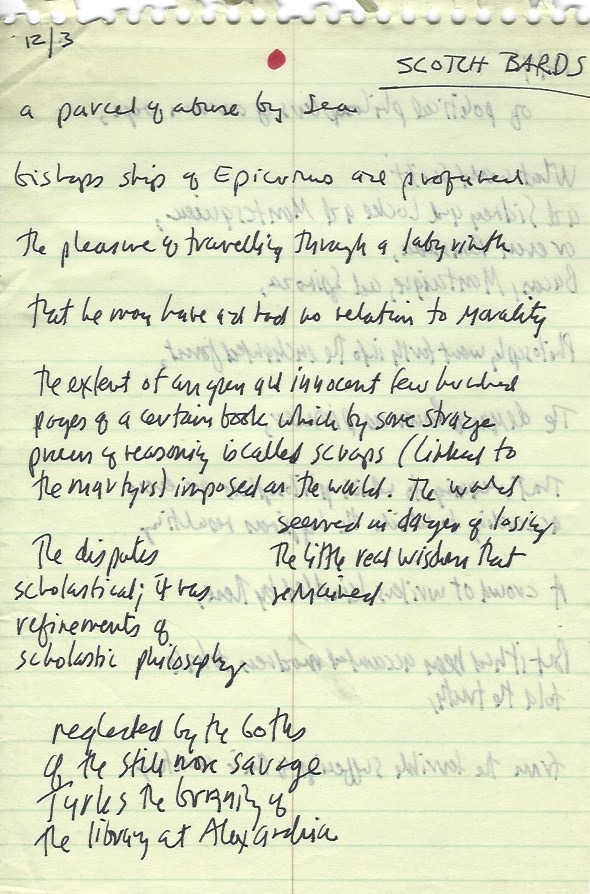 12/3
SCOTCH BARDS
a parcel of abuse by Sea
bishops ship of Epicurus are profused
the pleasure of travelling through a labyrinth
that he may have and had no relation to Morality
the extent of an open and innocent few hundred
pages of a certain book which by some strange
process of reasoning is called scraps (linked to
the martyrs) imposed on the world. The world
seemed in danger of losing
The disputes
the little real wisdom that
scholastical; it was
remained
refinements of
scholastic philosophy
neglected by the Goths
of the still more savage
Turks the burning of
the library at Alexandria